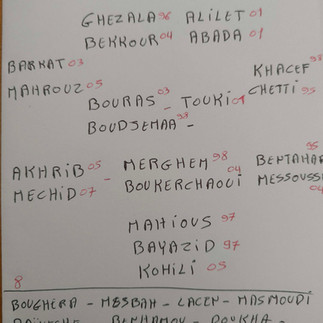 GHEZALA 96 ALILET 01
BEKKOUR 04 ABADA 01
BARKAT 03
KHACEF 98
MAHROUZ 05
CHETTI 95
BOURAS 03 - TOUKI 01
BOUDJEMAA 98 -
AKHRIB 05 - MERGHEM 98 BENTAHAR 95
MECHID 07 BOUKERCHAOUI 04 MESSOUSSI 04
MAHIOUS 97
BAYAZID 97
KOHILI 05
8
BOUGHERA - MESBAH - LACEN - MASMOUDI
BENHAMOU - DOUKHA -